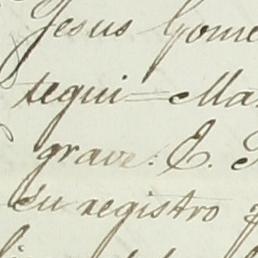 Jesus Gome
tegui = Ma
grave. C.
éu registro